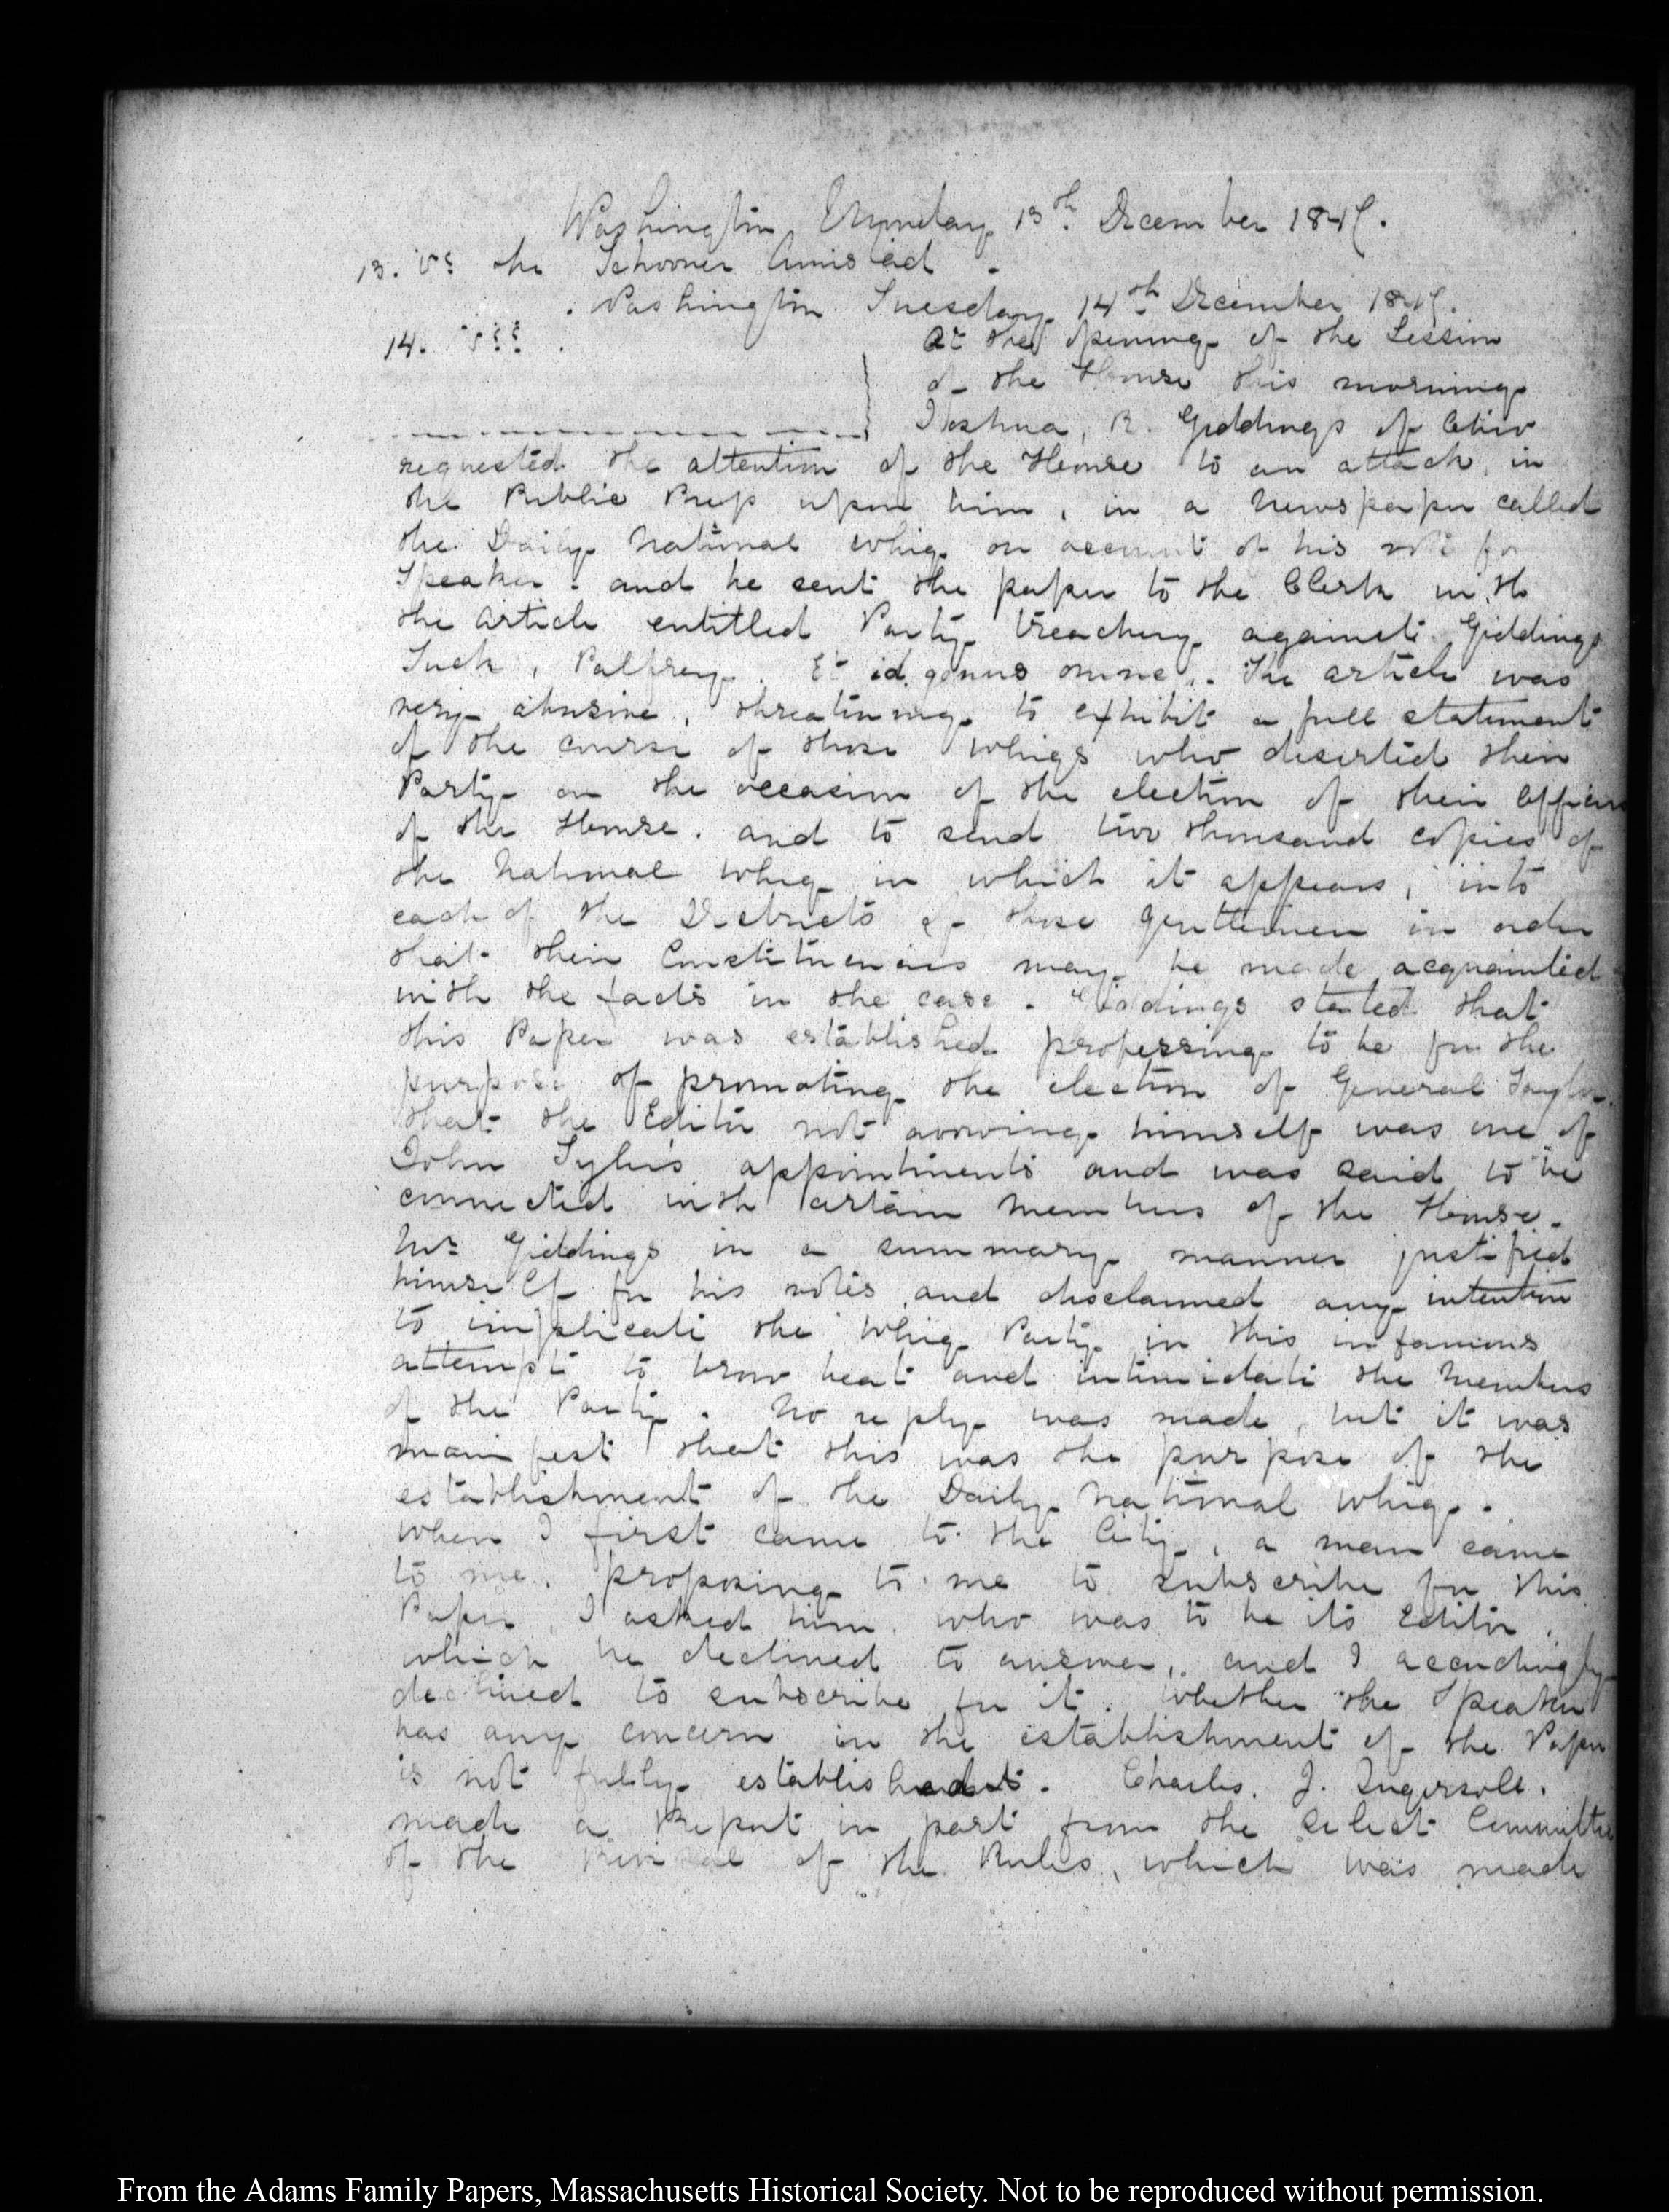 Washington Monday 13th December 1847.
13. the Schooner Amistad.
Washington Tuesday 14th December 1847.
14.
At the opening of the Session
of the House this morning
Joshua, R. Giddings of Ohio
requested the attention of the House to an attack in
the Public Press upon him, in a Newspaper called
the Daily National Whig on account of his vote for
Speaker. and he sent the paper to the Clerk with
the Article entitled Party treachery against Giddings
Tuck, Palfrey. Et id genus omne. The article was
very abusive, threatening to exhibit a full statement
of the course of those Whigs who deserted their
Party on the occasion of the election of their Officers
of the House. and to send two thousand copies of
the National Whig in which it appears, into
each of the Districts of those Gentlemen in order
that their Constituencies may be made acquainted
with the facts in the case. Giddings stated that
this Paper was established professing to be for the
purpose of promoting the election of General Taylor.
that the Editor not avowing himself was one of
John Tyler's appointments and was said to be
connected with certain Members of the House.
Mr Giddings in a summary manner justified
himself for his votes, and disclaimed any intention
to implicate the Whig Party in this infamous
attempt to brow beat and intimidate the Members
of the Party. No reply was made, but it was
manifest that this was the purpose of the
establishment of the Daily National Whig.
When I first came to the City, a man came
to me. proposing to me to subscribe for this
Paper, I asked him who was to be its Editor,
which he declined to answer, and I accordingly
declined to subscribe for it. Whether the Speaker
has any concern in the establishment of the Paper
is not fully established. Charles. J. Ingersoll.
made a Report in part from the select Committee
of the of the Rules, which was made
From the Adams Family Papers, Massachusetts Historical Society. Not to be reproduced without permission.